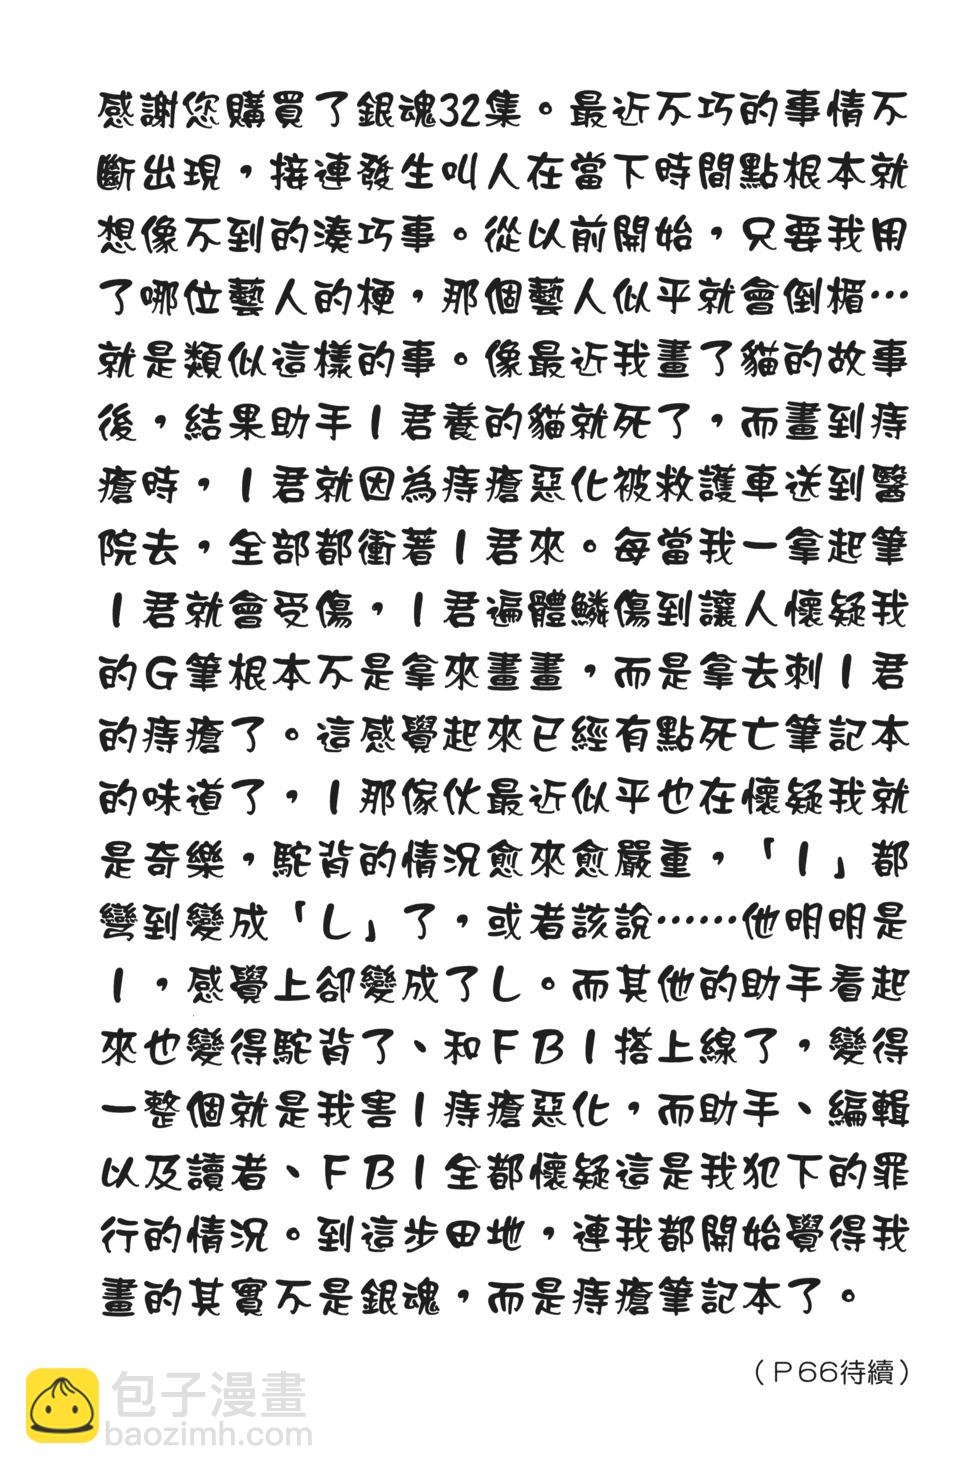 感謝您購買了銀魂32集。最近不巧的事情不
斷出現，接連發生叫人在當下時間點根本就
想像不到的湊巧事。從以前開始，只要我用
了哪位藝人的梗，那個藝人似乎就會倒楣…
就是類似這樣的事。像最近我畫了貓的故事
後，結果助手I君養的貓就死了，而畫到痔
瘡時，I君就因為痔瘡惡化被救護車送到醫
院去，全部都衝著I君來。每當我一拿起筆
I君就會受傷，I君遍體鱗傷到讓人懷疑我
的G筆根本不是拿來畫畫，而是拿去刺I君
的痔瘡了。這感覺起來已經有點死亡筆記本
的味道了，I那傢伙最近似乎也在懷疑我就
是奇樂，駝背的情況愈來愈嚴重，「I」都
彎到變成「L」了，或者該說……他明明是
I，感覺上卻變成了L。而其他的助手看起
來也變得駝背了、和FBI搭上線了，變得
一整個就是我害I痔瘡惡化，而助手、編輯
以及讀者、FBI全都懷疑這是我犯下的罪
行的情況。到這步田地，連我都開始覺得我
畫的其實不是銀魂，而是痔瘡筆記本了。
（P66待續）
包子漫畫
baozimh.com